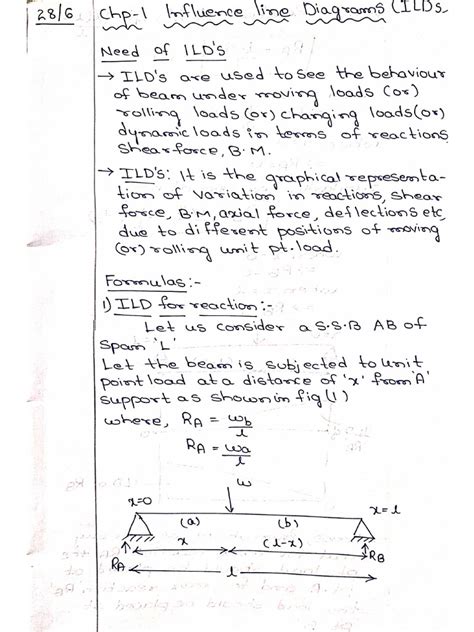 28/6
Chp-1 Influence line Diagrams (ILD's
Need of ILD's
→ ILD's are used to see the behaviour
of beam under moving loads (or)
rolling loads (or) changing loads (or)
dynamic loads in terms of reactions
shear force, B.M.
→ ILD's: It is the graphical representa-
tion of variation in reactions, shear
force, B.M, axial force, deflections etc,
due to different positions of moving
(or) rolling unit pt. load.
Formulas:-
1) ILD for reaction:-
Let us consider a S.S.B AB of
Span 'L'
Let the beam is subjected to unit
point load at a distance of 'x' from 'A'
support as shown in fig (1)
where, RA = wb/l
RA = wa/l
w
x=0
x=l
(a) (b)
x (l-x)
RA RB
l